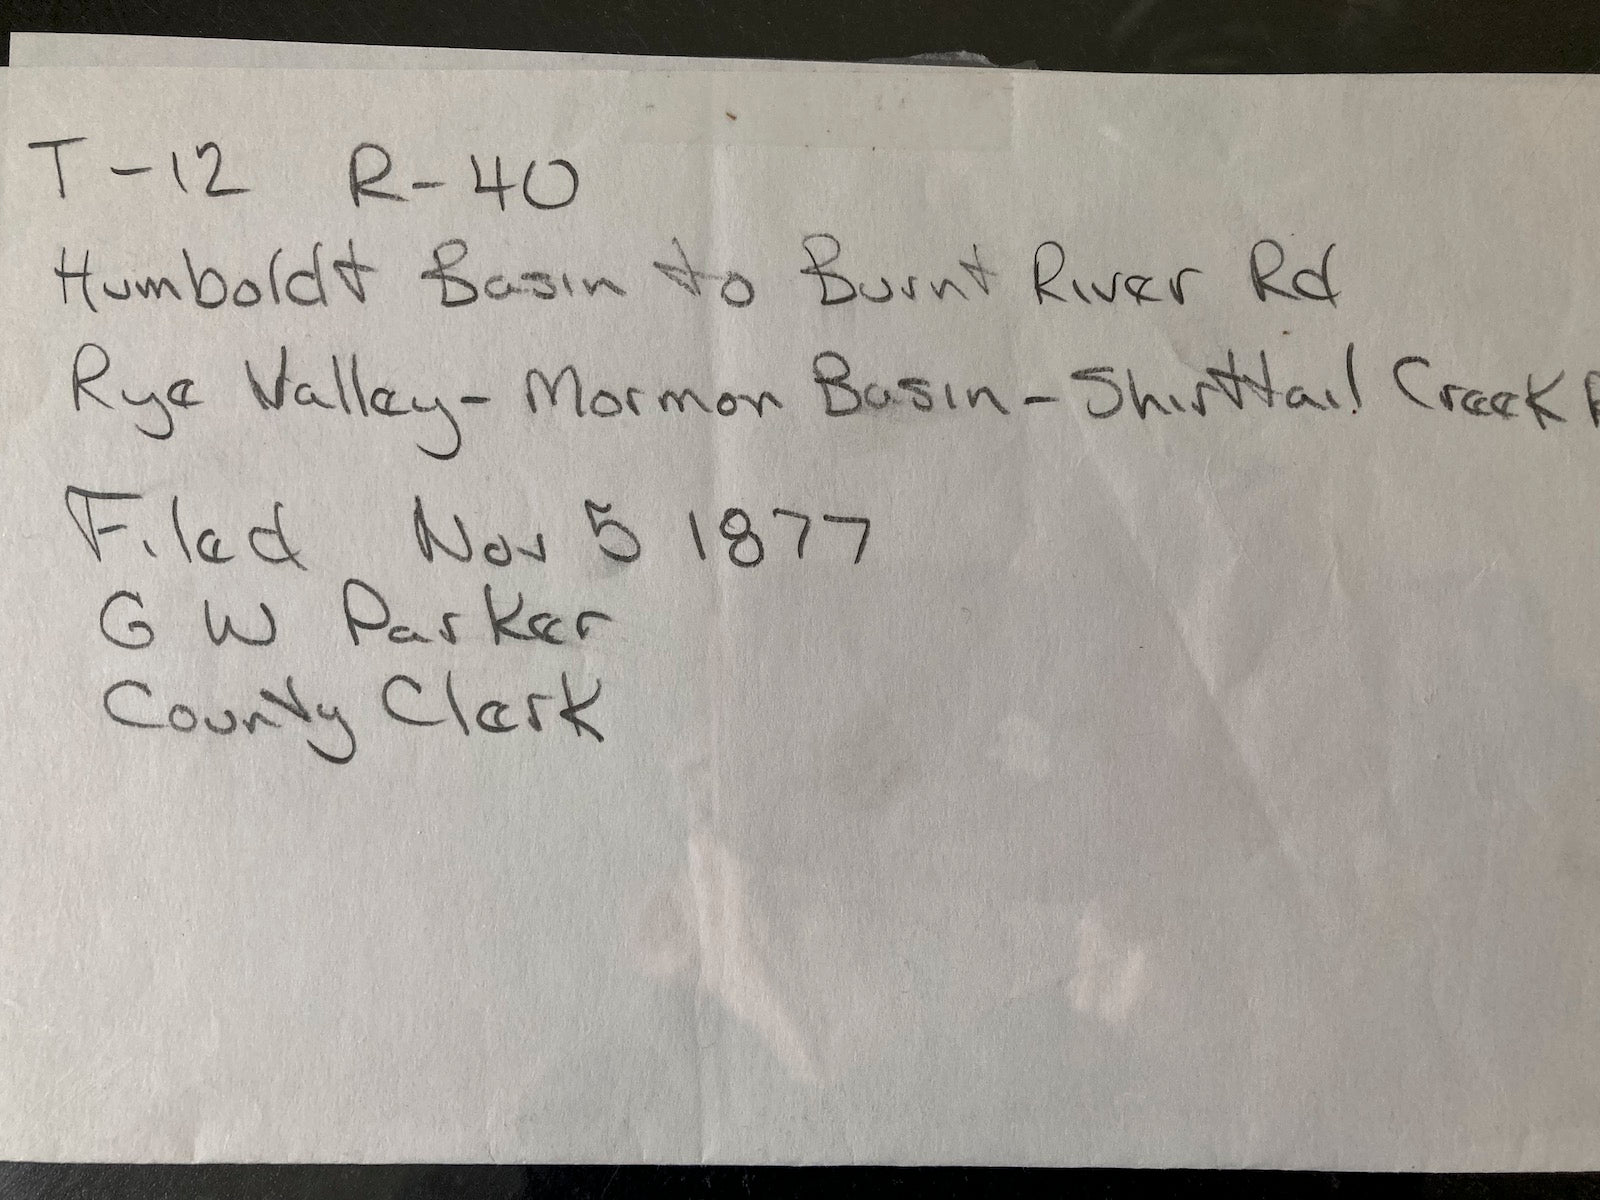 T-12 R-40
Humboldt Basin to Burnt River Rd
Rye Valley - Mormon Basin - Shirttail Creek
Filed Nov 5 1877
G W Parker
County Clerk